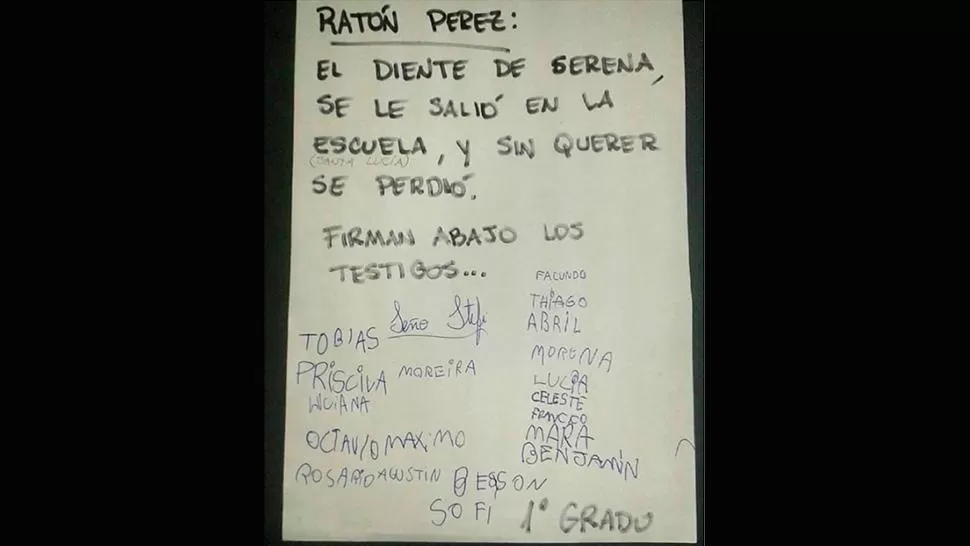 RATÓN PEREZ:
EL DIENTE DE SERENA,
SE LE SALIÓ EN LA
ESCUELA, Y SIN QUERER
(SANTA LUCÍA)
SE PERDIÓ.
FIRMAN ABAJO LOS
TESTIGOS...
FACUNDO
THIAGO
Seño Stefi
ABRIL
TOBIAS
MORENA
PRISCILA MOREIRA
LUCIA
LUCIANA
CELESTE
FRANCO
OCTAVIO MAXIMO
MARA
BENJAMÍN
ROSARIO AGUSTIN
SOFI
1° GRADO